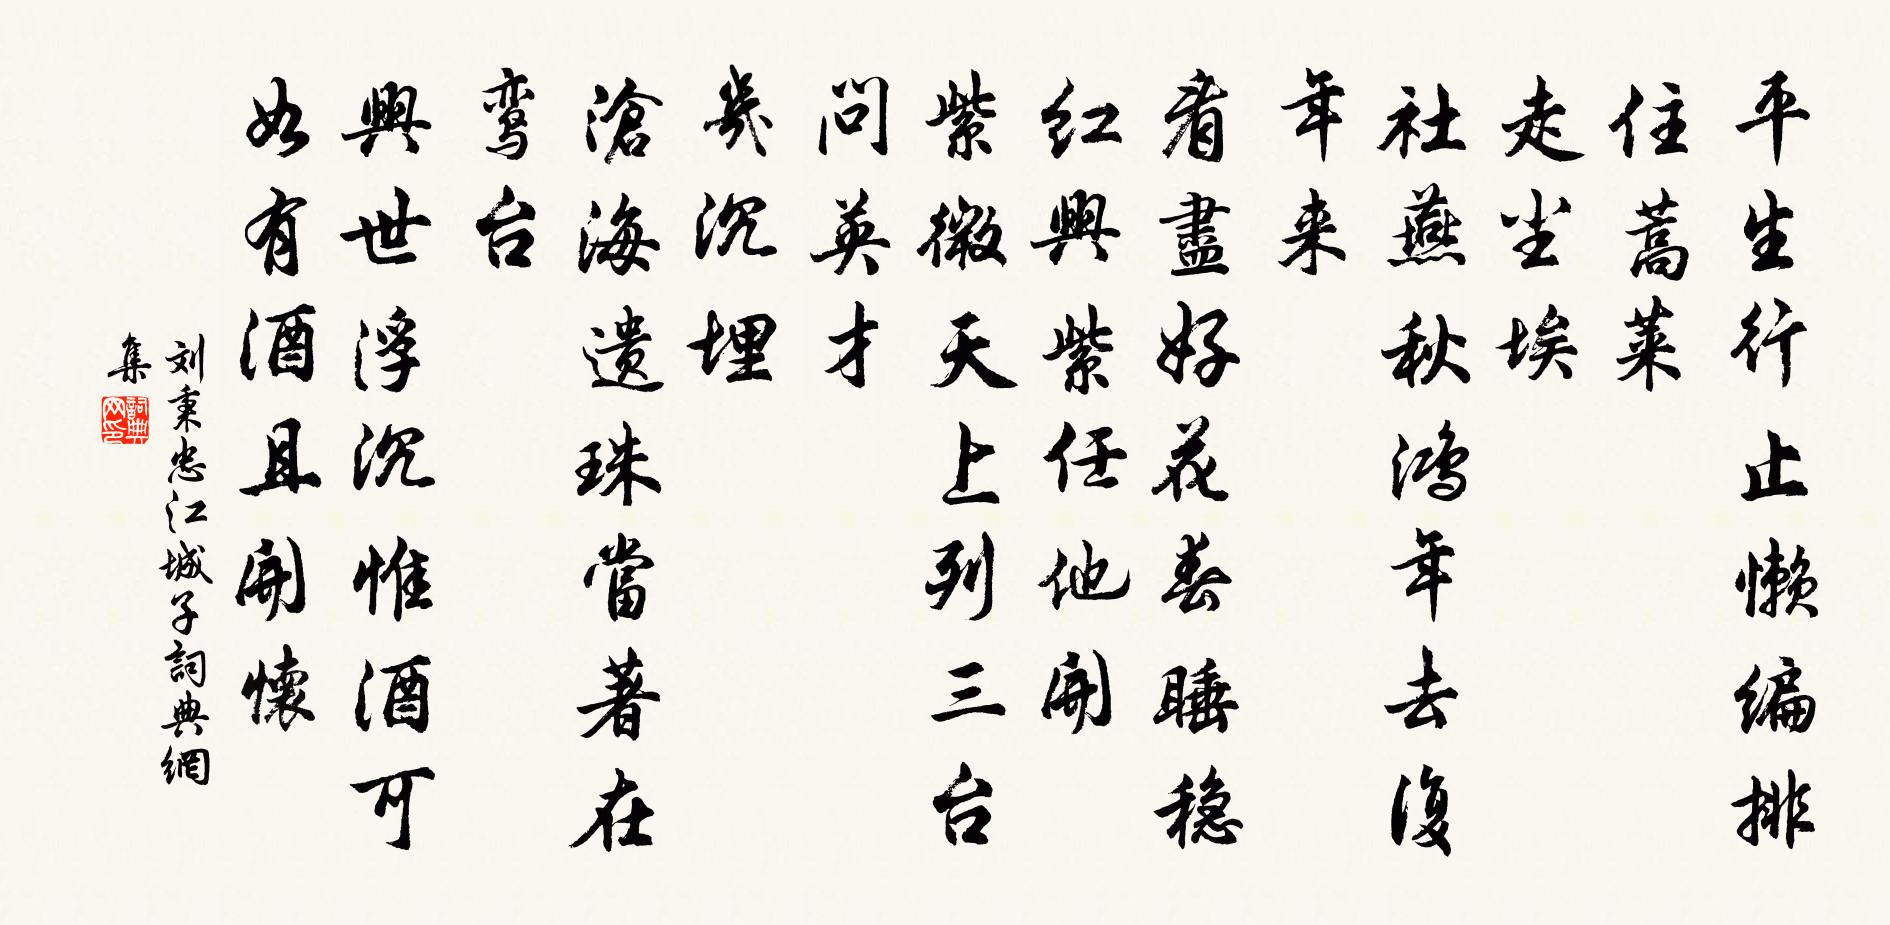 平生行止懒编排
住蒿莱
走尘埃
社燕秋鸿年去復
年来
看盡好花春睡稳
红興紫任他開
紫微天上列三台
問英才
幾沉埋
滄海遗珠當著在
鸾台
興世浮沉惟酒可
如有酒且開懷
刘秉忠江城子詞典網
集
詞典网印